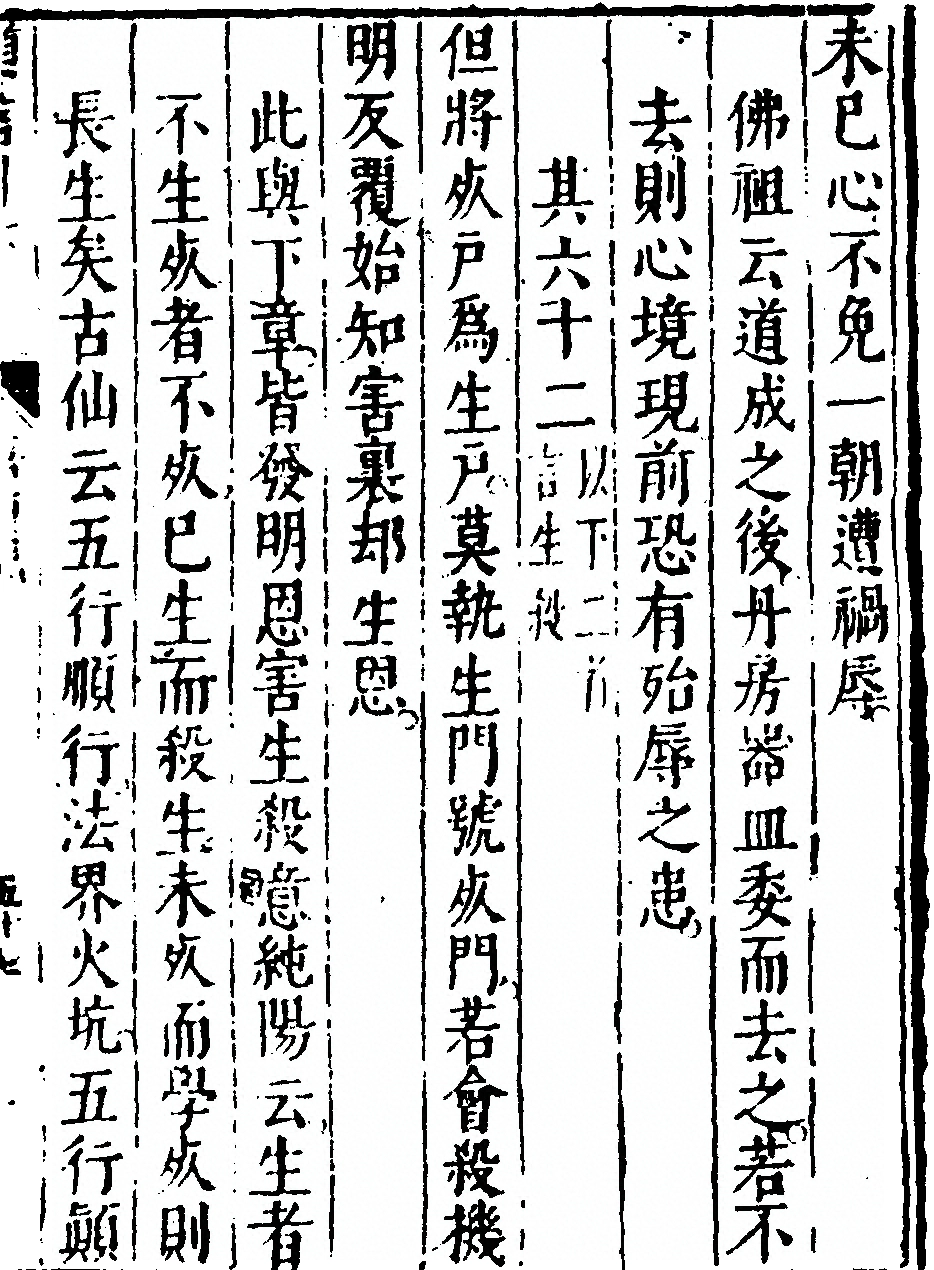 未已心不免一朝遭禍辱
佛祖云道成之後丹房器皿委而去之若不
去則心境現前恐有殆辱之患
其六十二以下二首言生殺
但將死戶爲生戶莫執生門號死門若會殺機
明反覆始知害裏却生恩
此與下章皆發明恩害生殺意純陽云生者
不生死者不死已生而殺生未死而學死則
長生矣古仙云五行順行法界火坑五行顛
五十七